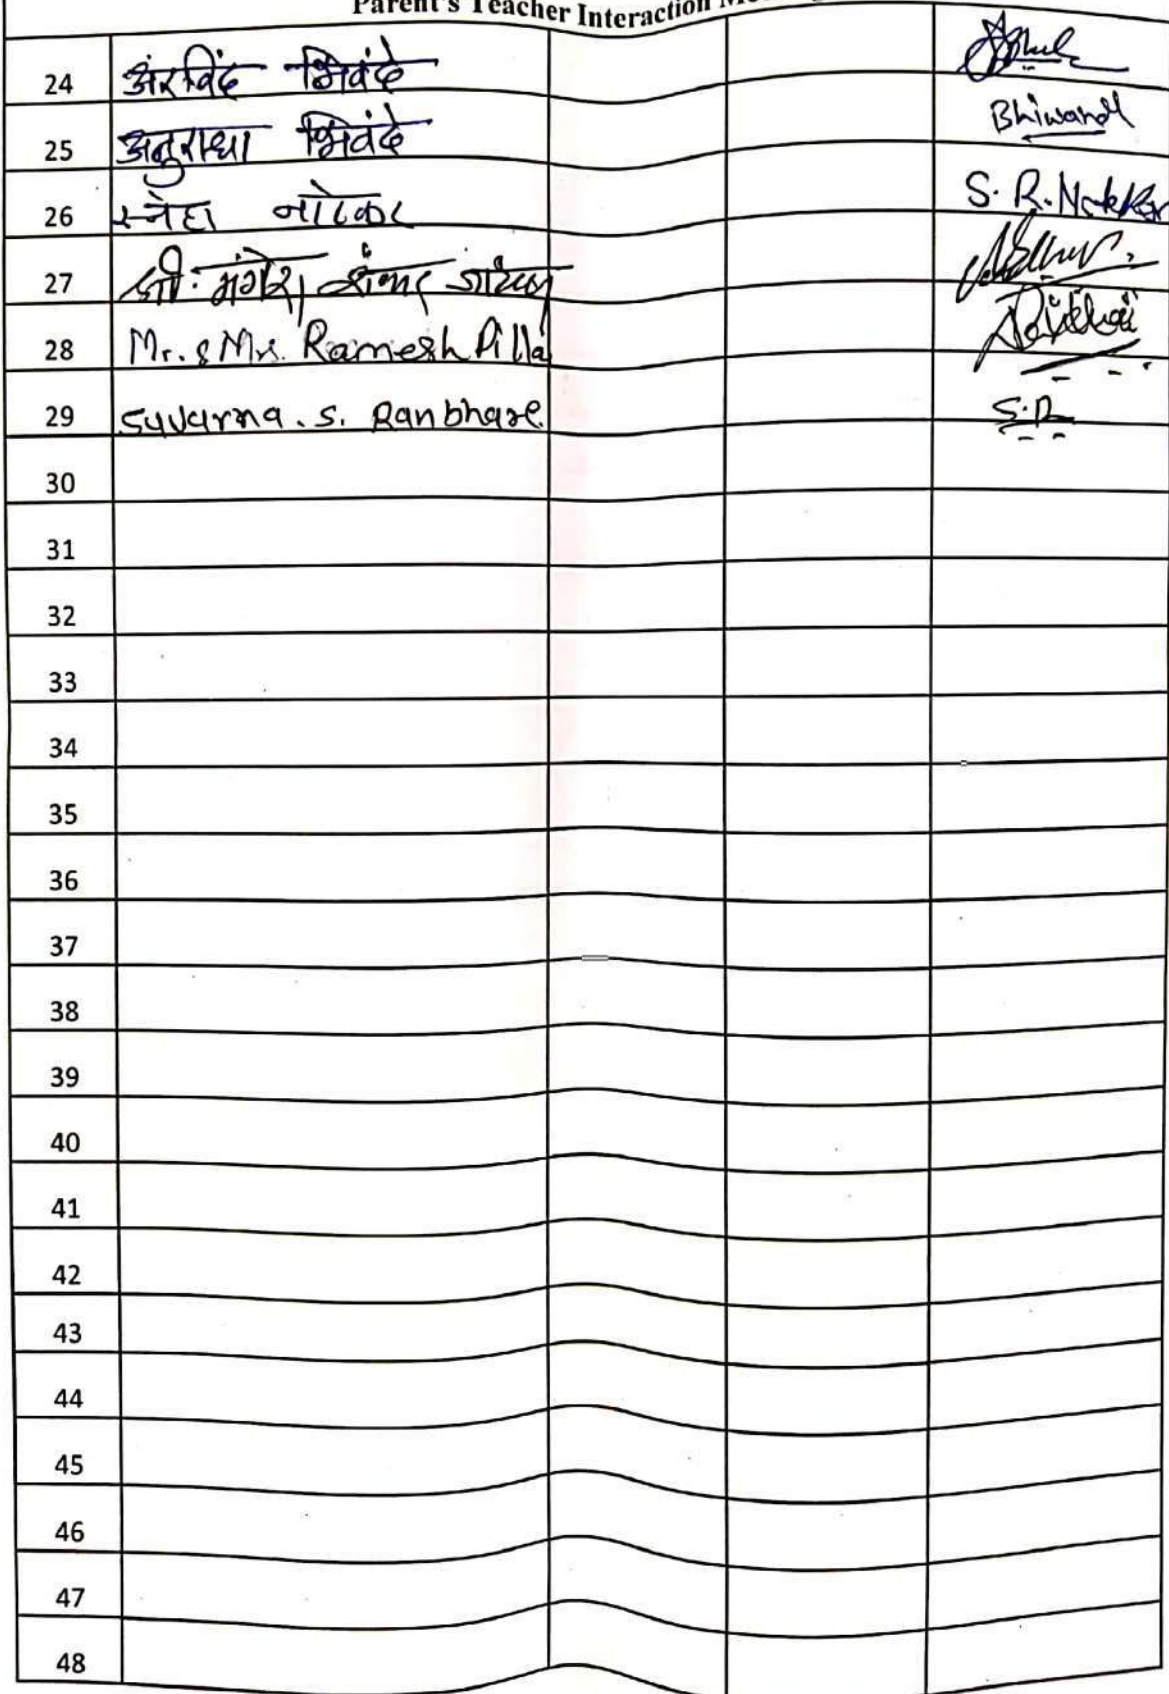 Parent's Teacher Interaction
24 अंरविंद भिवंदे
25 अनुराधा भिवंदे Bhiwandi
26 स्नेहा नाटेकर S. R. Natekar
27 श्री. मंगेश
28 Mr. & Mrs. Ramesh Pilla
29 Suvarna. S. Ranbhare S.R
30
31
32
33
34
35
36
37
38
39
40
41
42
43
44
45
46
47
48